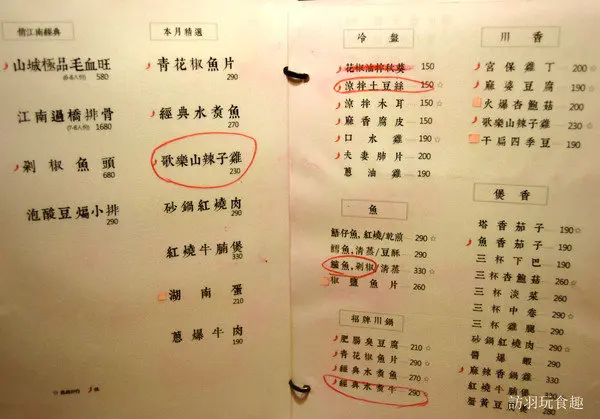 俏江南經典
山城極品毛血旺
580
江南過橋排骨
1680
剁椒魚頭
680
泡酸豆煸小排
290
本月精選
青花椒魚片
290
經典水煮魚
270
歌樂山辣子雞
230
砂鍋紅燒肉
290
紅燒牛腩煲
330
湖南蛋
210
蔥爆牛肉
190
冷盤
花椒油拌秋葵 150
涼拌土豆絲 150☆
涼拌木耳 150☆
麻香腐皮 150
口水雞 190☆
夫妻肺片 190
蔥油雞 190
魚
鮥仔魚,紅燒/乾煎 290☆
鱈魚,清蒸/豆酥 290
鱸魚,剁椒/清蒸 330☆
椒鹽魚片 260
招牌川鍋
肥腸臭豆腐 210☆
青花椒魚片 290
經典水煮魚 270☆
經典水煮牛 290
川香
宮保雞丁 200☆
麻婆豆腐 190
火爆杏鮑菇 210
歌樂山辣子雞 230☆
干扁四季豆 190☆
煲香
塔香茄子 190
魚香茄子 190☆
三杯下巴 190
三杯杏鮑菇 260☆
三杯淡菜 260
三杯中卷 290☆
三杯雞腿 290
砂鍋紅燒肉 290
醬爆蝦 290
麻辣香鍋雞 290
紅燒牛腩煲
蟹黃豆腐
訪羽玩食趣